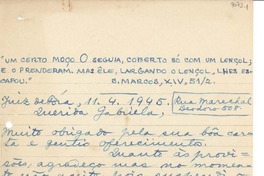 "UM CERTO MOÇO O SEGUIA, COBERTO SÓ COM UM LENÇOL;
E O PRENDERAM. MAS ÊLE, LARGANDO O LENÇOL, LHES ES-
CAPOU." S. MARCOS, XIV, 51/2.
Juiz de Fóra, 11. 9. 1945. Rua Marechal
Deodoro 508.
Querida Gabriela,
Muito obrigado pela sua bôa car-
ta e gentil oferecimento.
Quanto às provi-
sões, agradeço mas no momen-